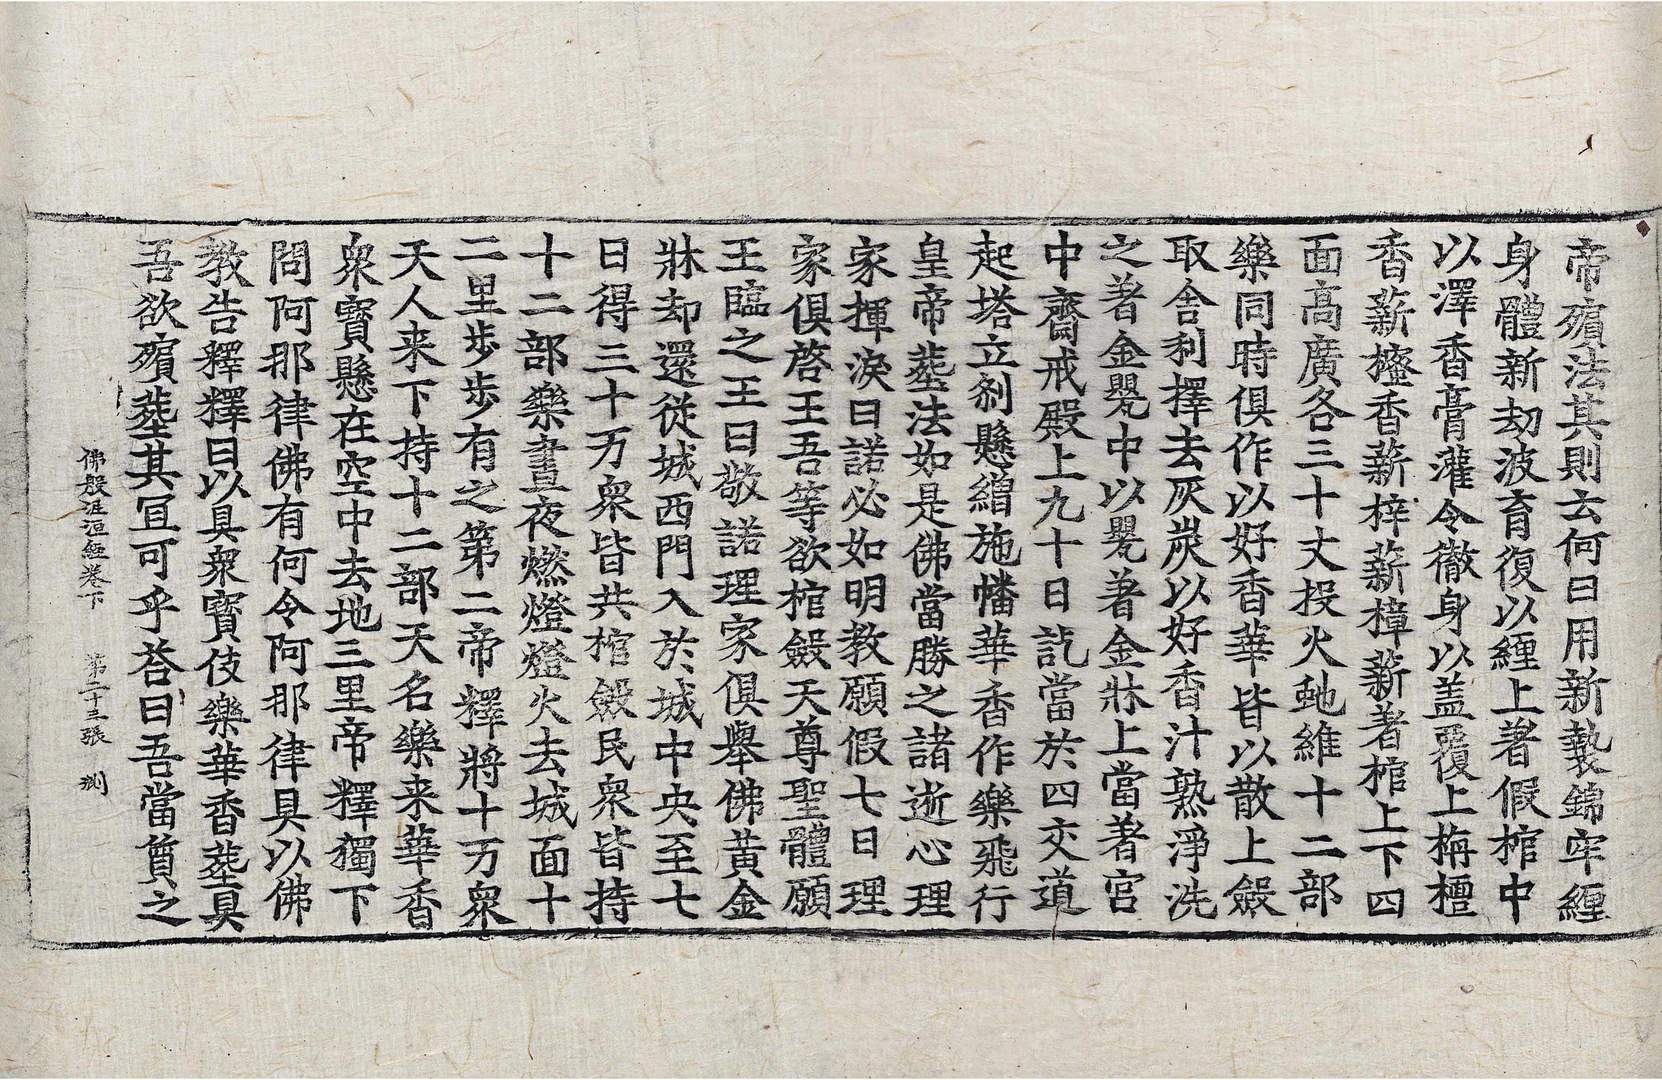 帝殯法其則云何曰用新㲲錦牢纏
身體新劫波育復以纏上著假棺中
以澤香膏灌令徹身以盖覆上栴檀
香薪㯌香薪梓薪樟薪著棺上下四
面高廣各三十丈投火虵維十二部
樂同時俱作以好香華皆以散上斂
取舍利擇去灰炭以好香汁熟淨洗
之著金甖中以甖著金牀上當著宮
中齋戒殿上九十日訖當於四交道
起塔立刹懸繒施幡華香作樂飛行
皇帝塟法如是佛當勝之諸逝心理
家揮淚曰諾必如明教願假七日理
家俱啓王吾等欲棺斂天尊聖體願
王臨之王曰敬諾理家俱舉佛黃金
牀却還從城西門入於城中央至七
日得三十万衆皆共棺斂民衆皆持
十二部樂晝夜燃燈燈火去城面十
二里步步有之第二帝釋將十万衆
天人来下持十二部天名樂来華香
衆寶懸在空中去地三里帝釋獨下
問阿那律佛有何令阿那律具以佛
教告釋釋曰以具衆寶伎樂華香塟具
吾欲殯塟其宜可乎荅曰吾當質之
佛般泥洹經卷下 第二十三張